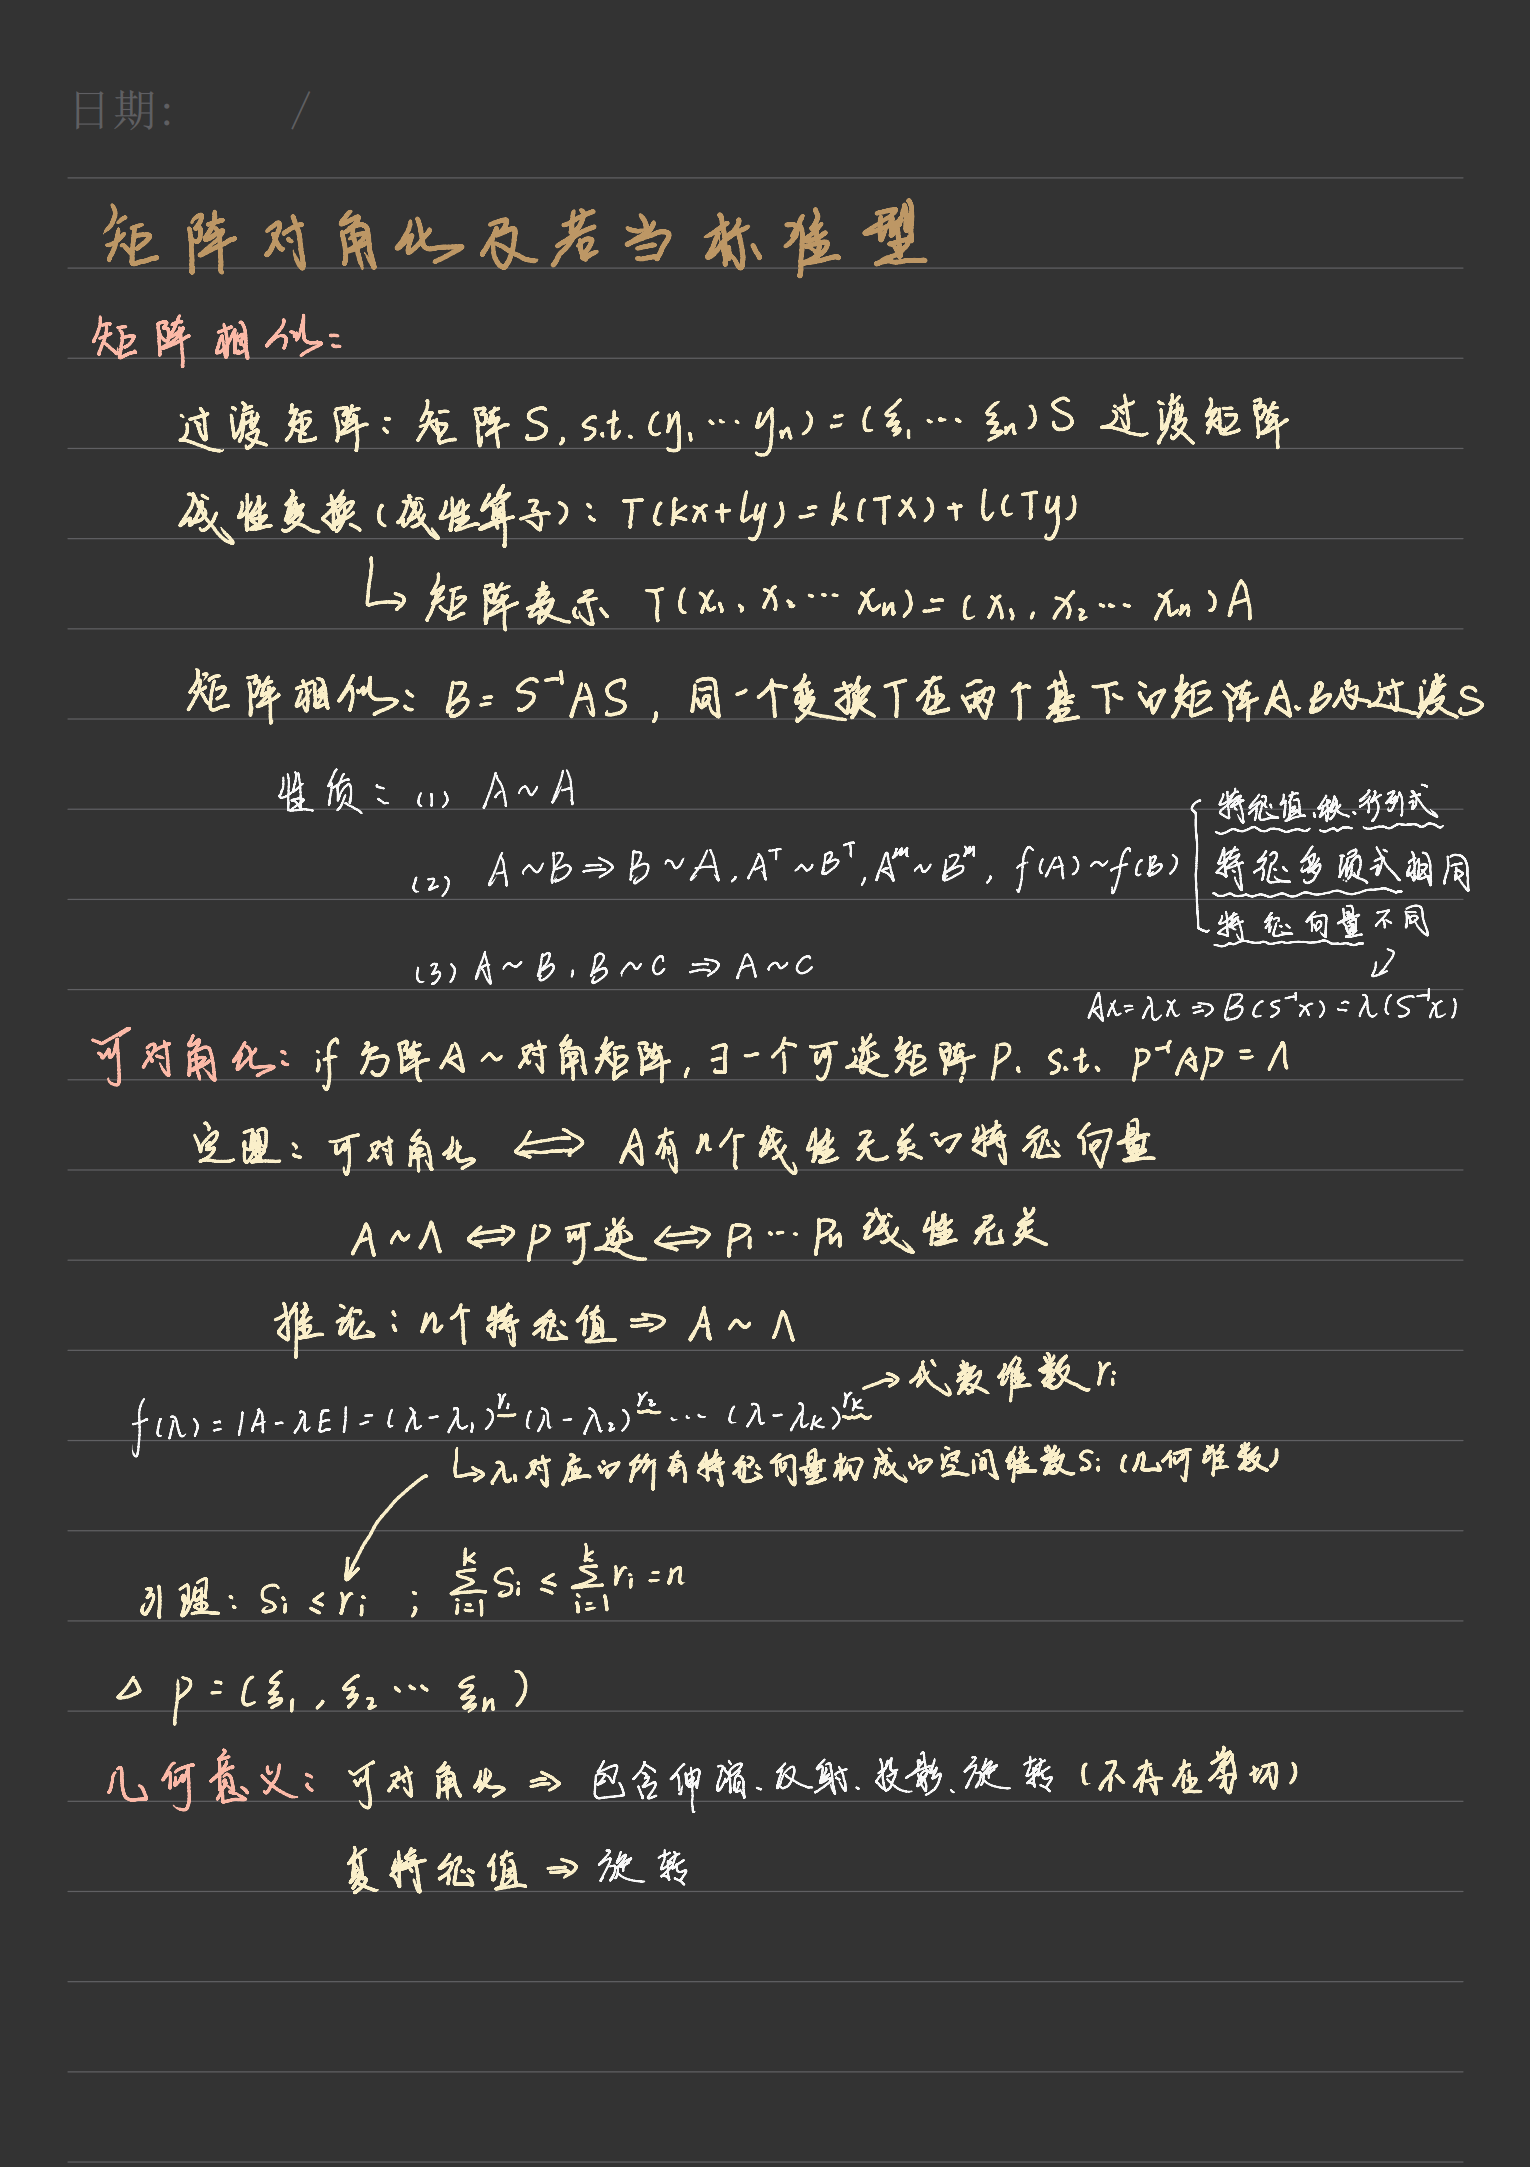 日期: /
矩阵对角化及若当标准型
矩阵相似:
过渡矩阵: 矩阵S, s.t. (y₁ ⋯ yₙ) = (ξ₁ ⋯ ξₙ)S 过渡矩阵
线性变换(线性算子): T(kx+ly) = k(Tx) + l(Ty)
↳ 矩阵表示 T(x₁, x₂ ⋯ xₙ) = (x₁, x₂ ⋯ xₙ)A
矩阵相似: B = S⁻¹AS, 同一个变换T在两个基下的矩阵A、B及过渡S
性质: (1) A ~ A
(2) A ~ B ⇒ B ~ A, Aᵀ ~ Bᵀ, Aᵐ ~ Bᵐ, f(A) ~ f(B)
特征值、秩、行列式
特征多项式相同
特征向量不同
(3) A ~ B, B ~ C ⇒ A ~ C
Ax = λx ⇒ B(S⁻¹x) = λ(S⁻¹x)
可对角化: if 方阵A ~ 对角矩阵, ∃一个可逆矩阵P. s.t. P⁻¹AP = Λ
定理: 可对角化 ⟺ A有n个线性无关的特征向量
A ~ Λ ⟺ P可逆 ⟺ P₁ ⋯ Pₙ 线性无关
推论: n个特征值 ⇒ A ~ Λ
→ 代数维数 rᵢ
f(λ) = |A - λE| = (λ - λ₁)^r₁ (λ - λ₂)^r₂ ⋯ (λ - λₖ)^rₖ
↳ λᵢ对应的所有特征向量构成的空间维数Sᵢ (几何维数)
引理: Sᵢ ≤ rᵢ ; ∑_{i=1}^{k} Sᵢ ≤ ∑_{i=1}^{k} rᵢ = n
△ P = (ξ₁, ξ₂ ⋯ ξₙ)
几何意义: 可对角化 ⇒ 包含伸缩、反射、投影、旋转 (不存在剪切)
复特征值 ⇒ 旋转